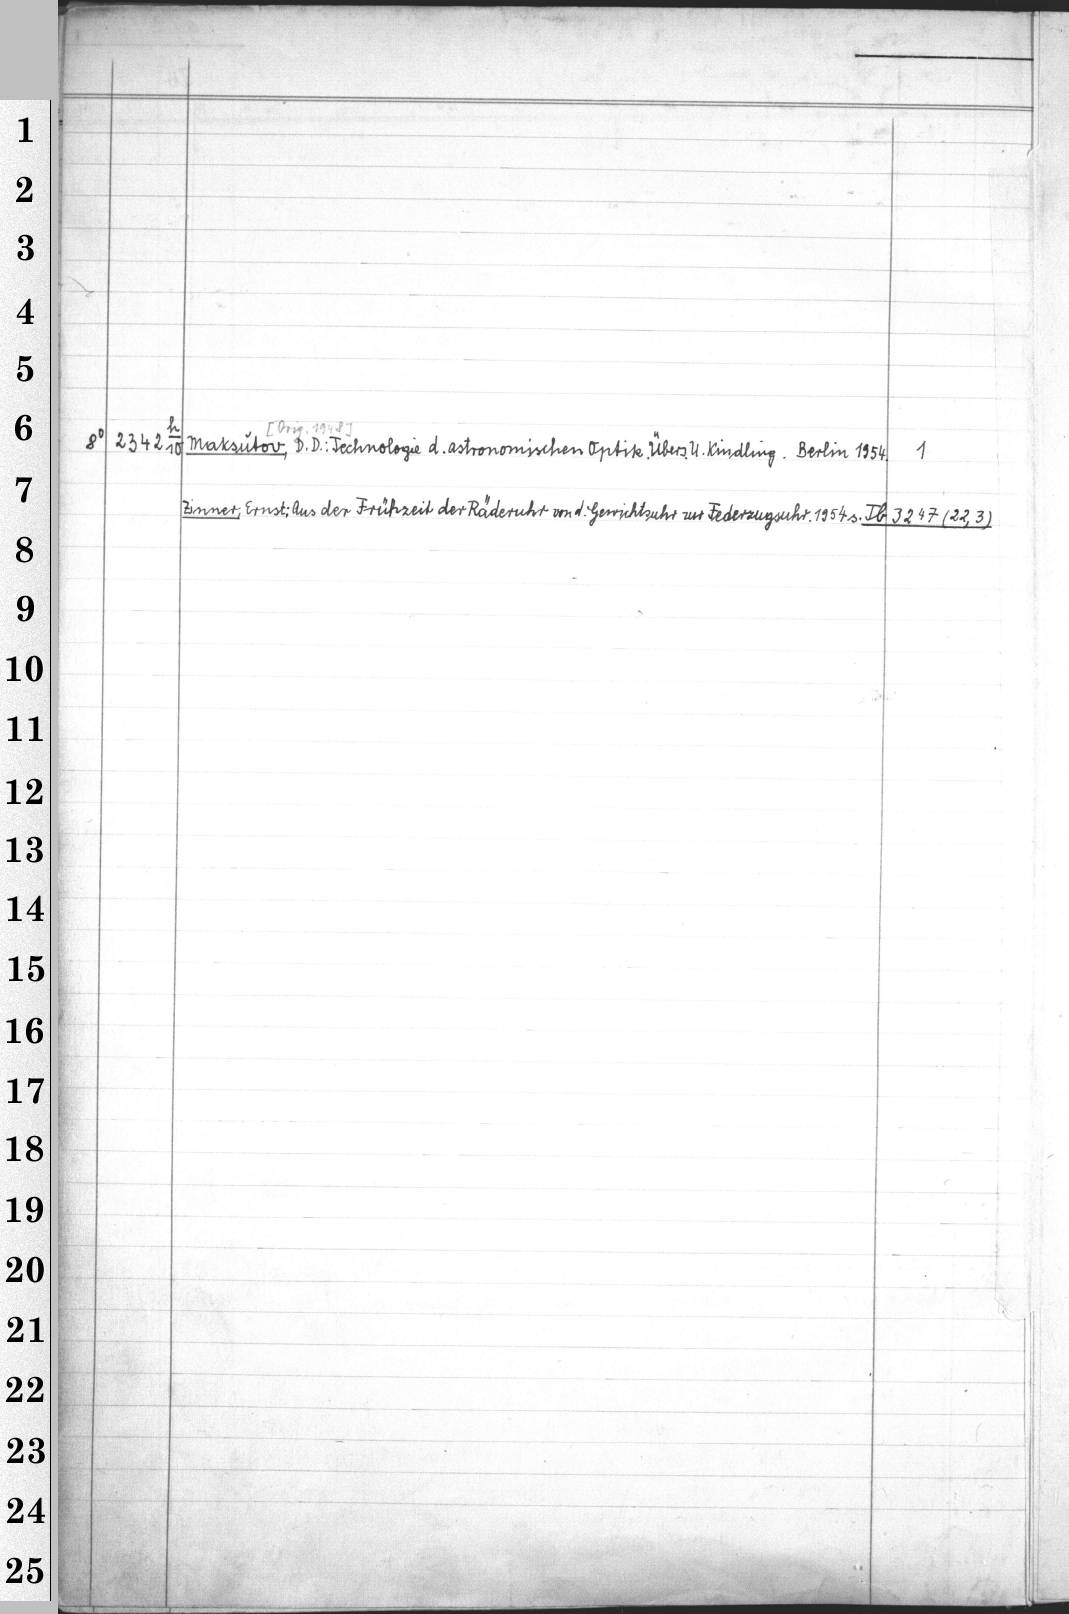 1
2
3
4
5
[Orig. 1948]
6 8° 2342 h/10 Maksútov, D.D.: Technologie d. astronomischen Optik. Übers. U. Kindling. Berlin 1954. 1
7
Zinner, Ernst: Aus der Frühzeit der Räderuhr von d. Gewichtsuhr zur Federzugsuhr. 1954 s. Ib 3247 (22,3)
8
9
10
11
12
13
14
15
16
17
18
19
20
21
22
23
24
25